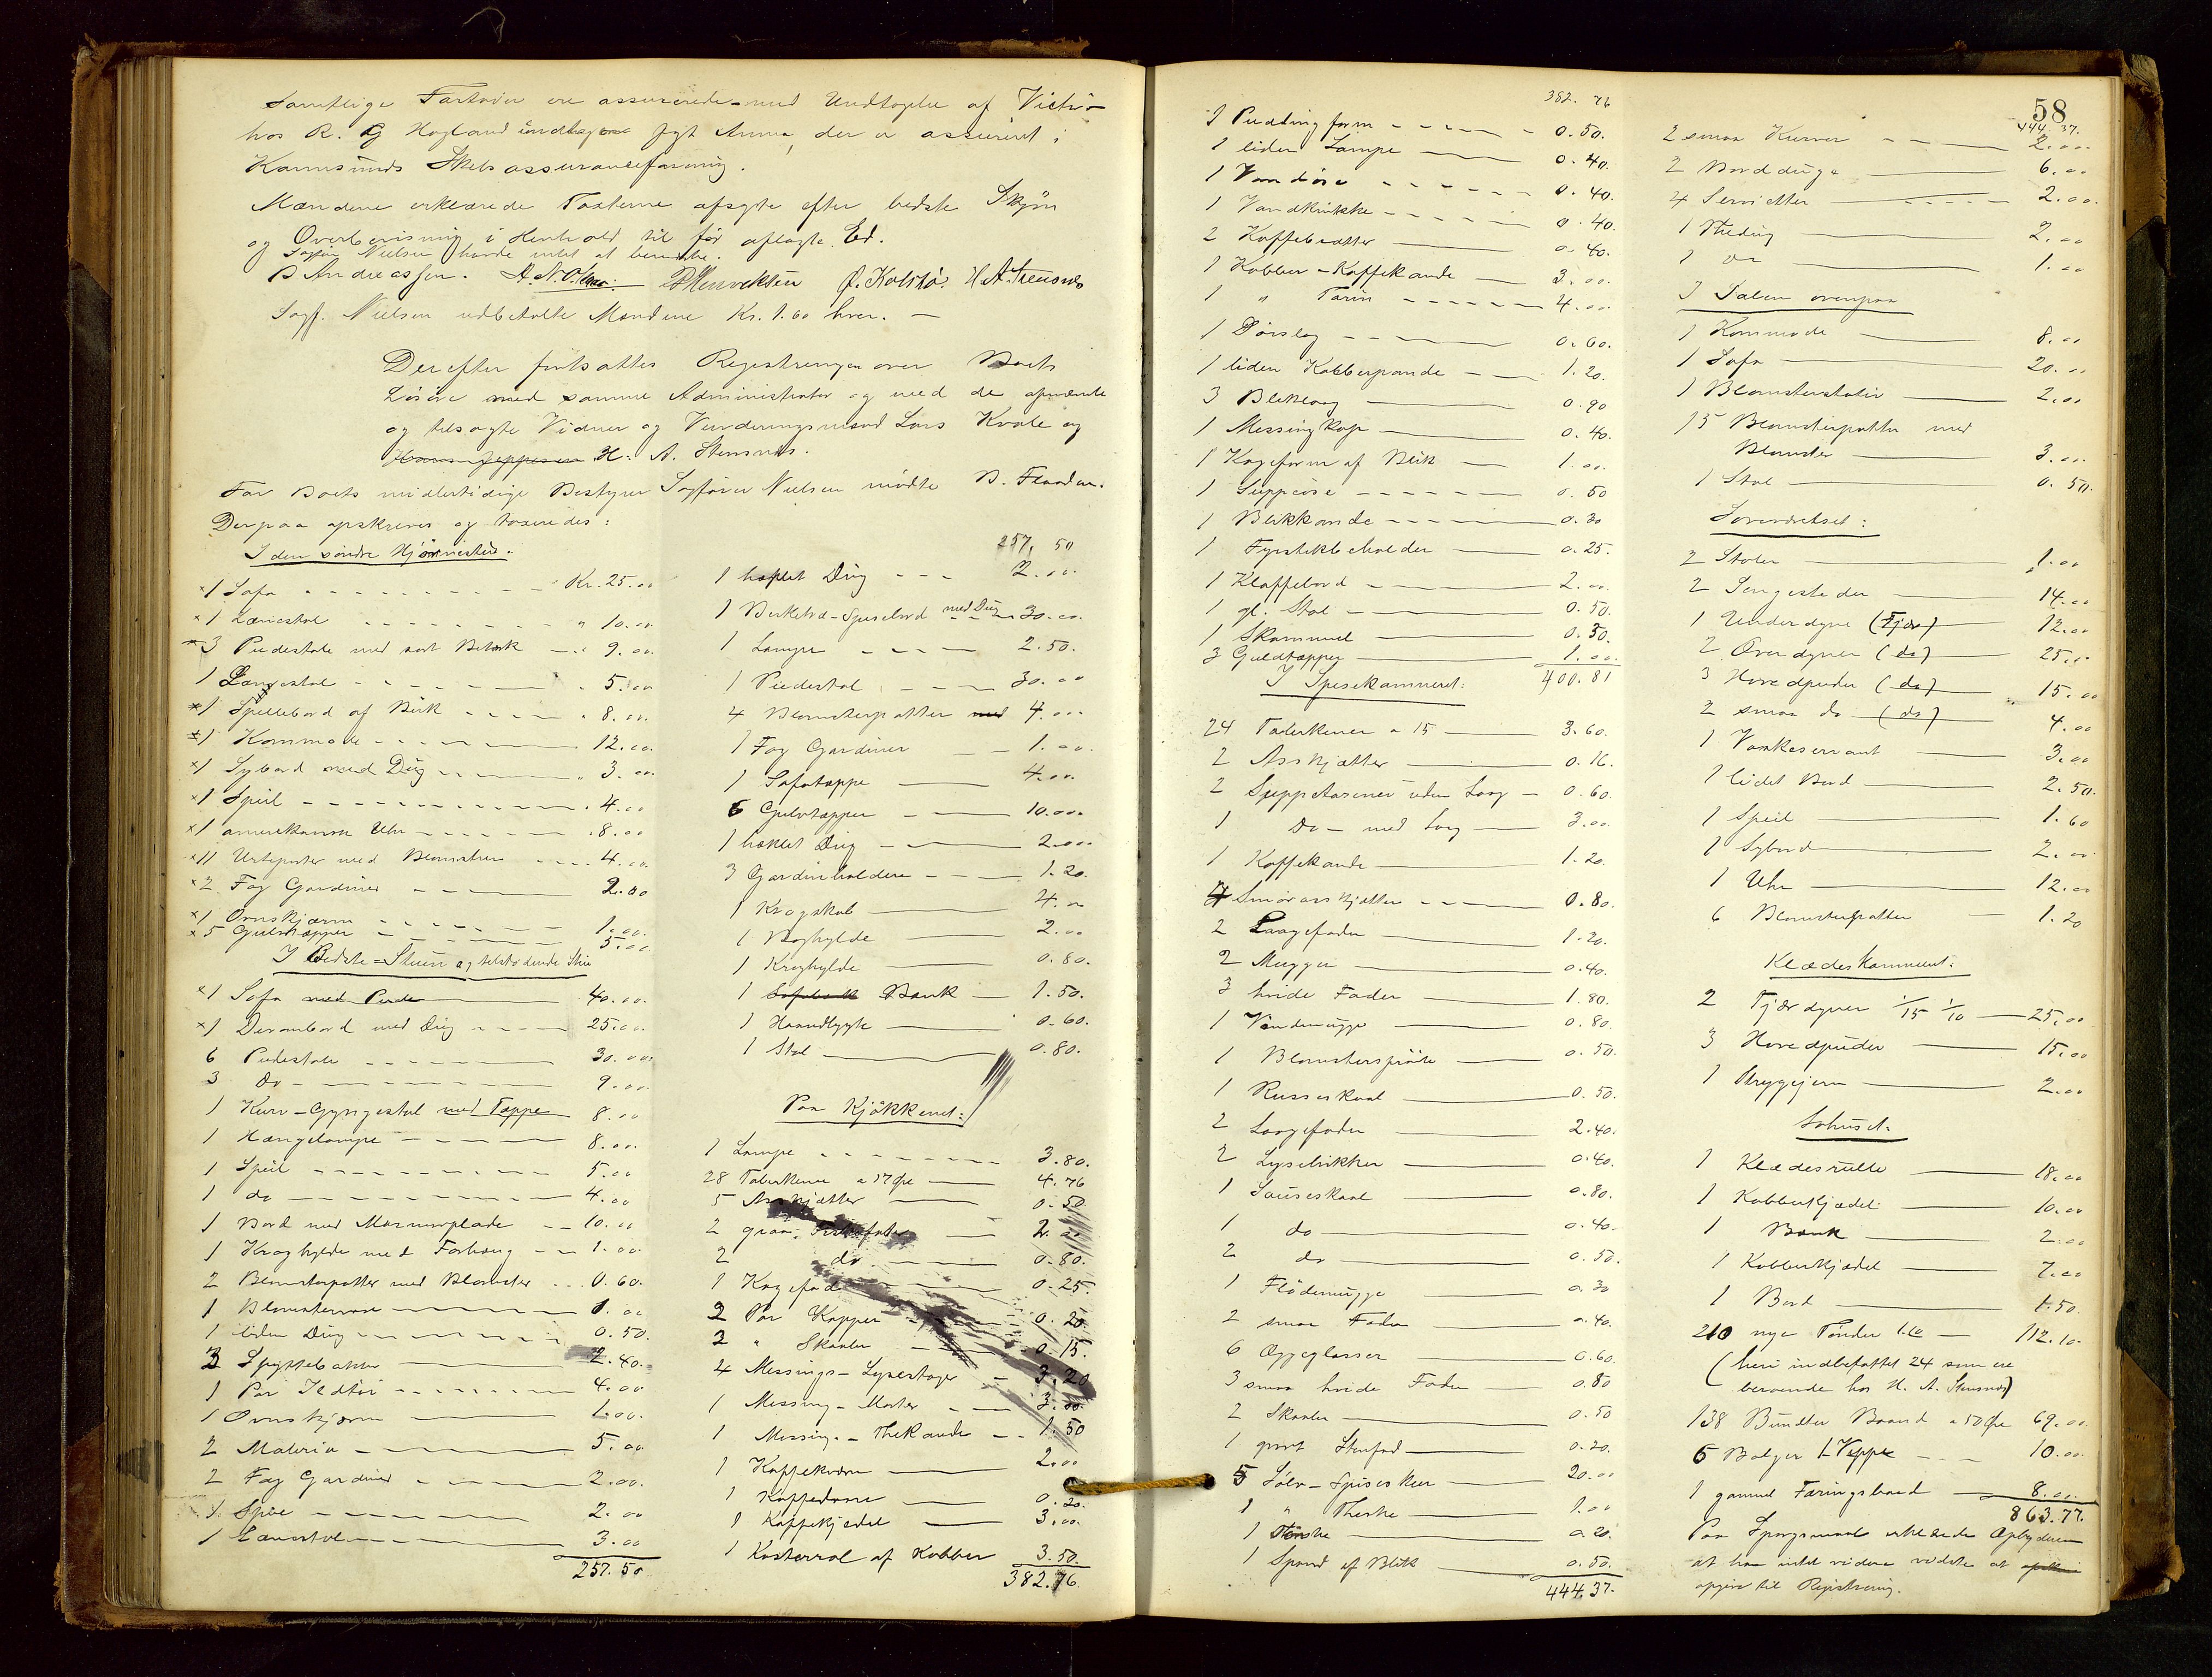 Samtlige Fartøier ere assurerede med Undtagelse af Victria
hos R. G Hagland undtagen Jgt Anna, der er assureret i
Karmsunds Skibsassuranceforening.
Mændene erklærede Taxterne afsagte efter bedste Skjøn
og Overbevisning i Henhold til før aflagte Ed.
Sagfør Nielsen havde intet at bemerke.
B Andreassen. A. N. Olsen. P Henriksen Ø. Kolstø. H. A. Stensnes
Sagf. Nielsen udbetalte Mændene Kr. 1.60 hver. —
Derefter fortsattes Registreringen over Boets
Løsøre med samme Administrator og med de opnævnte
og tilsagte Vidner og Vurderingsmænd Lars Kvale og
Hans Jeppesen H. A. Stensnes.
For Boets midlertidige Bestyrer Sagfører Nielsen mødte B. Flaaden.
Derpaa opskreves og taxeredes:
I den søndre Hjørnestue.
×1 Sofa Kr. 25.00
×1 Lænestol " 10.00
×3 Pindestole med sort Betræk 9.00
1 Længestol 5.00
×1 Spillebord af Birk 8.00
×1 Kommode 12.00
×1 Sybord med Dug 3.00
×1 Speil 4.00
×1 amerikansk Uhr 8.00
×11 Urtepotter med Blomster 4.00
×2 Fag Gardiner 2.00
×1 Ovnskjærm 1.00
×5 Gulvtæpper 5.00
I Bedste-Stuen og tilstødende Stue
×1 Sofa med Pude 40.00
×1 Divanbord med Dug 25.00
6 Pindestole 30.00
3 do 9.00
1 Kurv-Gyngestol med Tæppe 8.00
1 Hængelampe 8.00
1 Speil 5.00
1 do 4.00
1 Bord med Marmorplade 10.00
1 Kroghylde med Forhæng 1.00
2 Blomsterpotter med Blomster 0.60
1 Blomstervase 1.00
1 liden Dug 0.50
3 Spyttebakker 2.40
1 Par Ildtøi 4.00
1 Ovnskjærm 1.00
2 Malerier 5.00
2 Fag Gardiner 2.00
1 2.00
1 Lænestol 3.00
257.50
257.50
1 heklet Dug 2.00
1 Birketræ-Spisebord med Dug 30.00
1 Lampe 2.50
1 Piedestal 30.00
4 Blomsterpotter med 4.00
1 Fag Gardiner 1.00
1 Sofatæppe 4.00
6 Gulvtæpper 10.00
1 heklet Dug 2.00
3 Gardinholdere 1.20
1 Krogskab 4.00
1 Boghylde 2.00
1 Kroghylde 0.80
1 Sofabænk Bænk 1.50
1 Haandlygte 0.60
1 Stol 0.80
Paa Kjøkkenet:
1 Lampe 3.80
28 Talerkener a 17 Øre 4.76
5 Asskjætter 0.50
2 graa Fiskefade 2.00
2 do 0.80
1 Kagefad 0.25
2 Par Kopper 0.20
2 " Skaaler 0.15
4 Messings-Lysestager 3.20
1 Messing-Morter 3.00
1 Messing-Thekande 1.50
1 Kaffekværn 2.00
1 Kaffedaase 0.20
1 Kaffekjedel 3.00
1 Kasterrol af Kobber 3.50
382.76
382.76
1 Puddingform 0.50
1 liden Lampe 0.40
1 Vandøse 0.40
1 Vandkrukke 0.40
2 Kaffebrætter 0.40
1 Kobber-Kaffekande 3.00
1 " Tarin 4.00
1 Dørslag 0.60
1 liden Kobberpande 1.20
3 Bliklaag 0.90
1 Messingkop 0.40
1 Kageform af Blik 1.00
1 Suppeøse 0.50
1 Blikkande 0.30
1 Fyrstikbeholder 0.25
1 Klaffebord 2.00
1 gl. Stol 0.50
1 Skammel 0.50
3 Gulvtæpper 1.00
400.81
I Spisekammeret:
24 Talerkener a 15 3.60
2 Asskjætter 0.16
2 Suppetariner uden Laag 0.60
1 Do- med Laag 3.00
1 Kaffekande 1.20
4 Smørasskjætter 0.80
2 Laagefade 1.20
2 Mugger 0.40
3 hvide Fade 1.80
1 Vandmugge 0.80
1 Blomstersprøite 0.50
1 Russeskaal 0.50
2 Laagefade 2.40
2 Lysebrikker 0.40
1 Sauseskaal 0.80
1 do 0.40
2 do 0.50
1 Flødemugge 0.30
2 smaa Fade 0.40
6 Æggeglasser 0.60
3 smaa hvide Fade 0.80
2 Skaaler 0.50
1 graat Stenfad 0.20
5 Sølv-Spiseskeer 20.00
1 " Theske 1.00
1 0.20
1 Spand af Blik 0.50
444.37
58
444.37.
2 smaa Kurver 2.00
2 Bordduge 6.00
4 Servietter 2.00
1 2.00
1 do 1.00
I Salen ovenpaa
1 Kommode 8.00
1 Sofa 20.00
1 Blomsterstativ 2.00
15 Blomsterpotter med
Blomster 3.00
1 Stol 0.50
Soveværelset:
2 Stoler 1.00
2 Sengesteder 14.00
1 Underdyne (Fjær) 12.00
2 Overdyner (do) 25.00
3 Hovedpuder (do) 15.00
2 smaa do (do) 4.00
1 Vaskeservant 3.00
1 lidet Bord 2.50
1 Speil 1.60
1 Sybord 2.00
1 Uhr 12.00
6 Blomsterpotter 1.20
Klædeskammeret:
2 Fjærdyner 1/15 1/10 25.00
3 Hovedpuder 15.00
1 Strygejern 2.00
Søhuset.
1 Klædesrulle 18.00
1 Kobberkjædel 10.00
1 Bænk 2.00
1 Kobberkjædel 7.00
1 Bord 1.50
210 nye Tønder 112.10
(heri indbefattet 24 som ere
beroende hos H. A. Stensnes)
138 Bundter Baand a 50 Øre 69.00
5 Baljer 10.00
1 gammel Færingsbaad 8.00
863.77.
Paa Spørgsmaal erklærede Opbyderen
at han intet videre vidste at
opgive til Registrering.